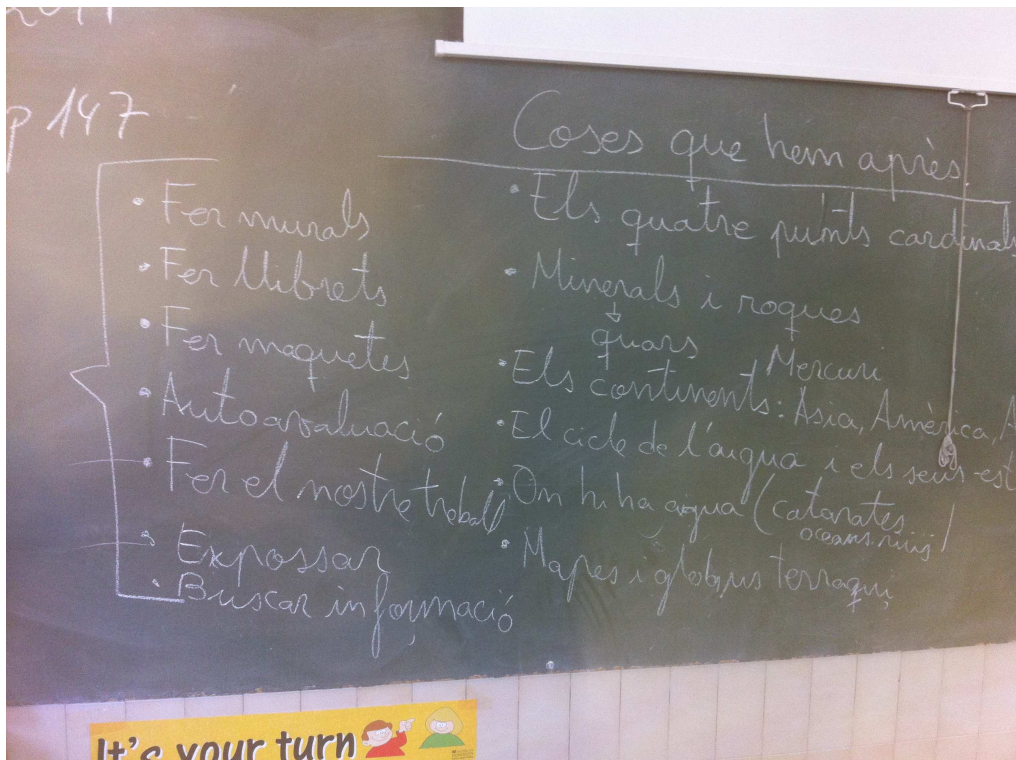 2011
p 147
Fer murals
Fer llibrets
Fer maquetes
Autoavaluació
Fer el nostre treball
Expossar
Buscar informació
Coses que hem après
Els quatre punts cardinals
Minerals i roques
quars
Mercuri
Els continents: Asia, Amèrica, A
El cicle de l'aigua i els seus est
On hi ha aigua (catarates,
oceans, rius)
Mapes i globus terraqui
It's your turn